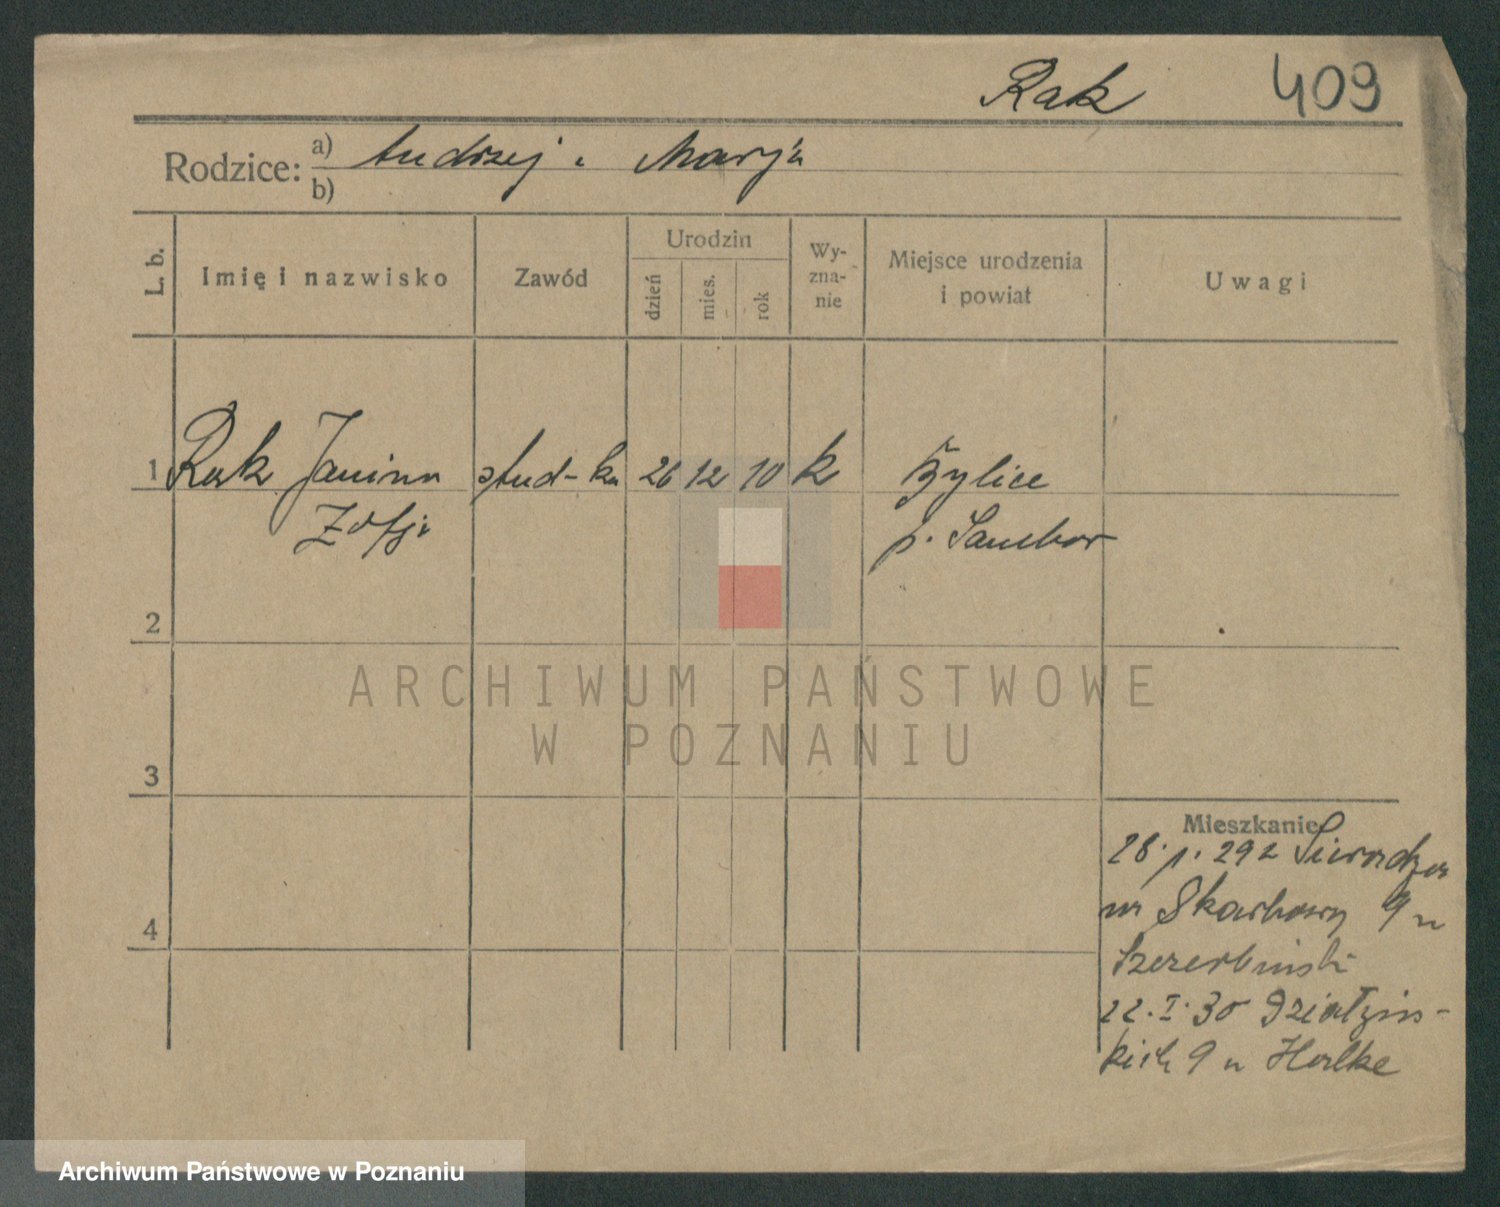 Rak 409
Rodzice: a) Andrzej i Marja
b)
L. b. Imię i nazwisko Zawód Urodzin dzień mies. rok Wy-zna-nie Miejsce urodzenia i powiat Uwagi
1 Rak Janina stud-ka 26 12 10 k Bylice
Zofja p. Sambor
2
ARCHIWUM PAŃSTWOWE
W POZNANIU
3
Mieszkanie
28. p. 29 z
Skarbowy 9 u
4
Szczerbiński
22. I. 30 Działyńs-
kich 9 u Halke
Archiwum Państwowe w Poznaniu